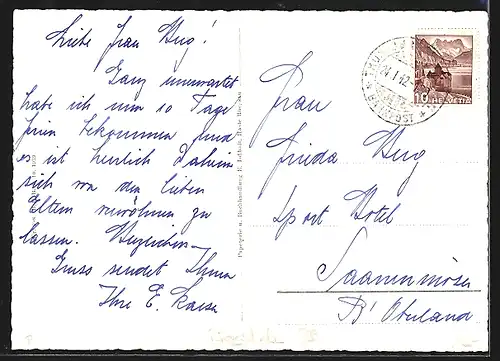 Liebe Frau Hug!
Ganz unerwartet
habe ich nun 10 Tage
frei bekommen und
es ist herrlich Daheim
sich von den lieben
Eltern verwöhnen zu
lassen. Herzlichen
Gruss sendet Ihnen
Ihre E. Kaiser
Papeterie u. Buchhandlung
10
HELVETIA
Frau
Frieda Hug
Sport Hotel
Saanenmöser
B' Oberland